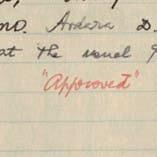 no. Ardara D.
at the usual
"Approved"